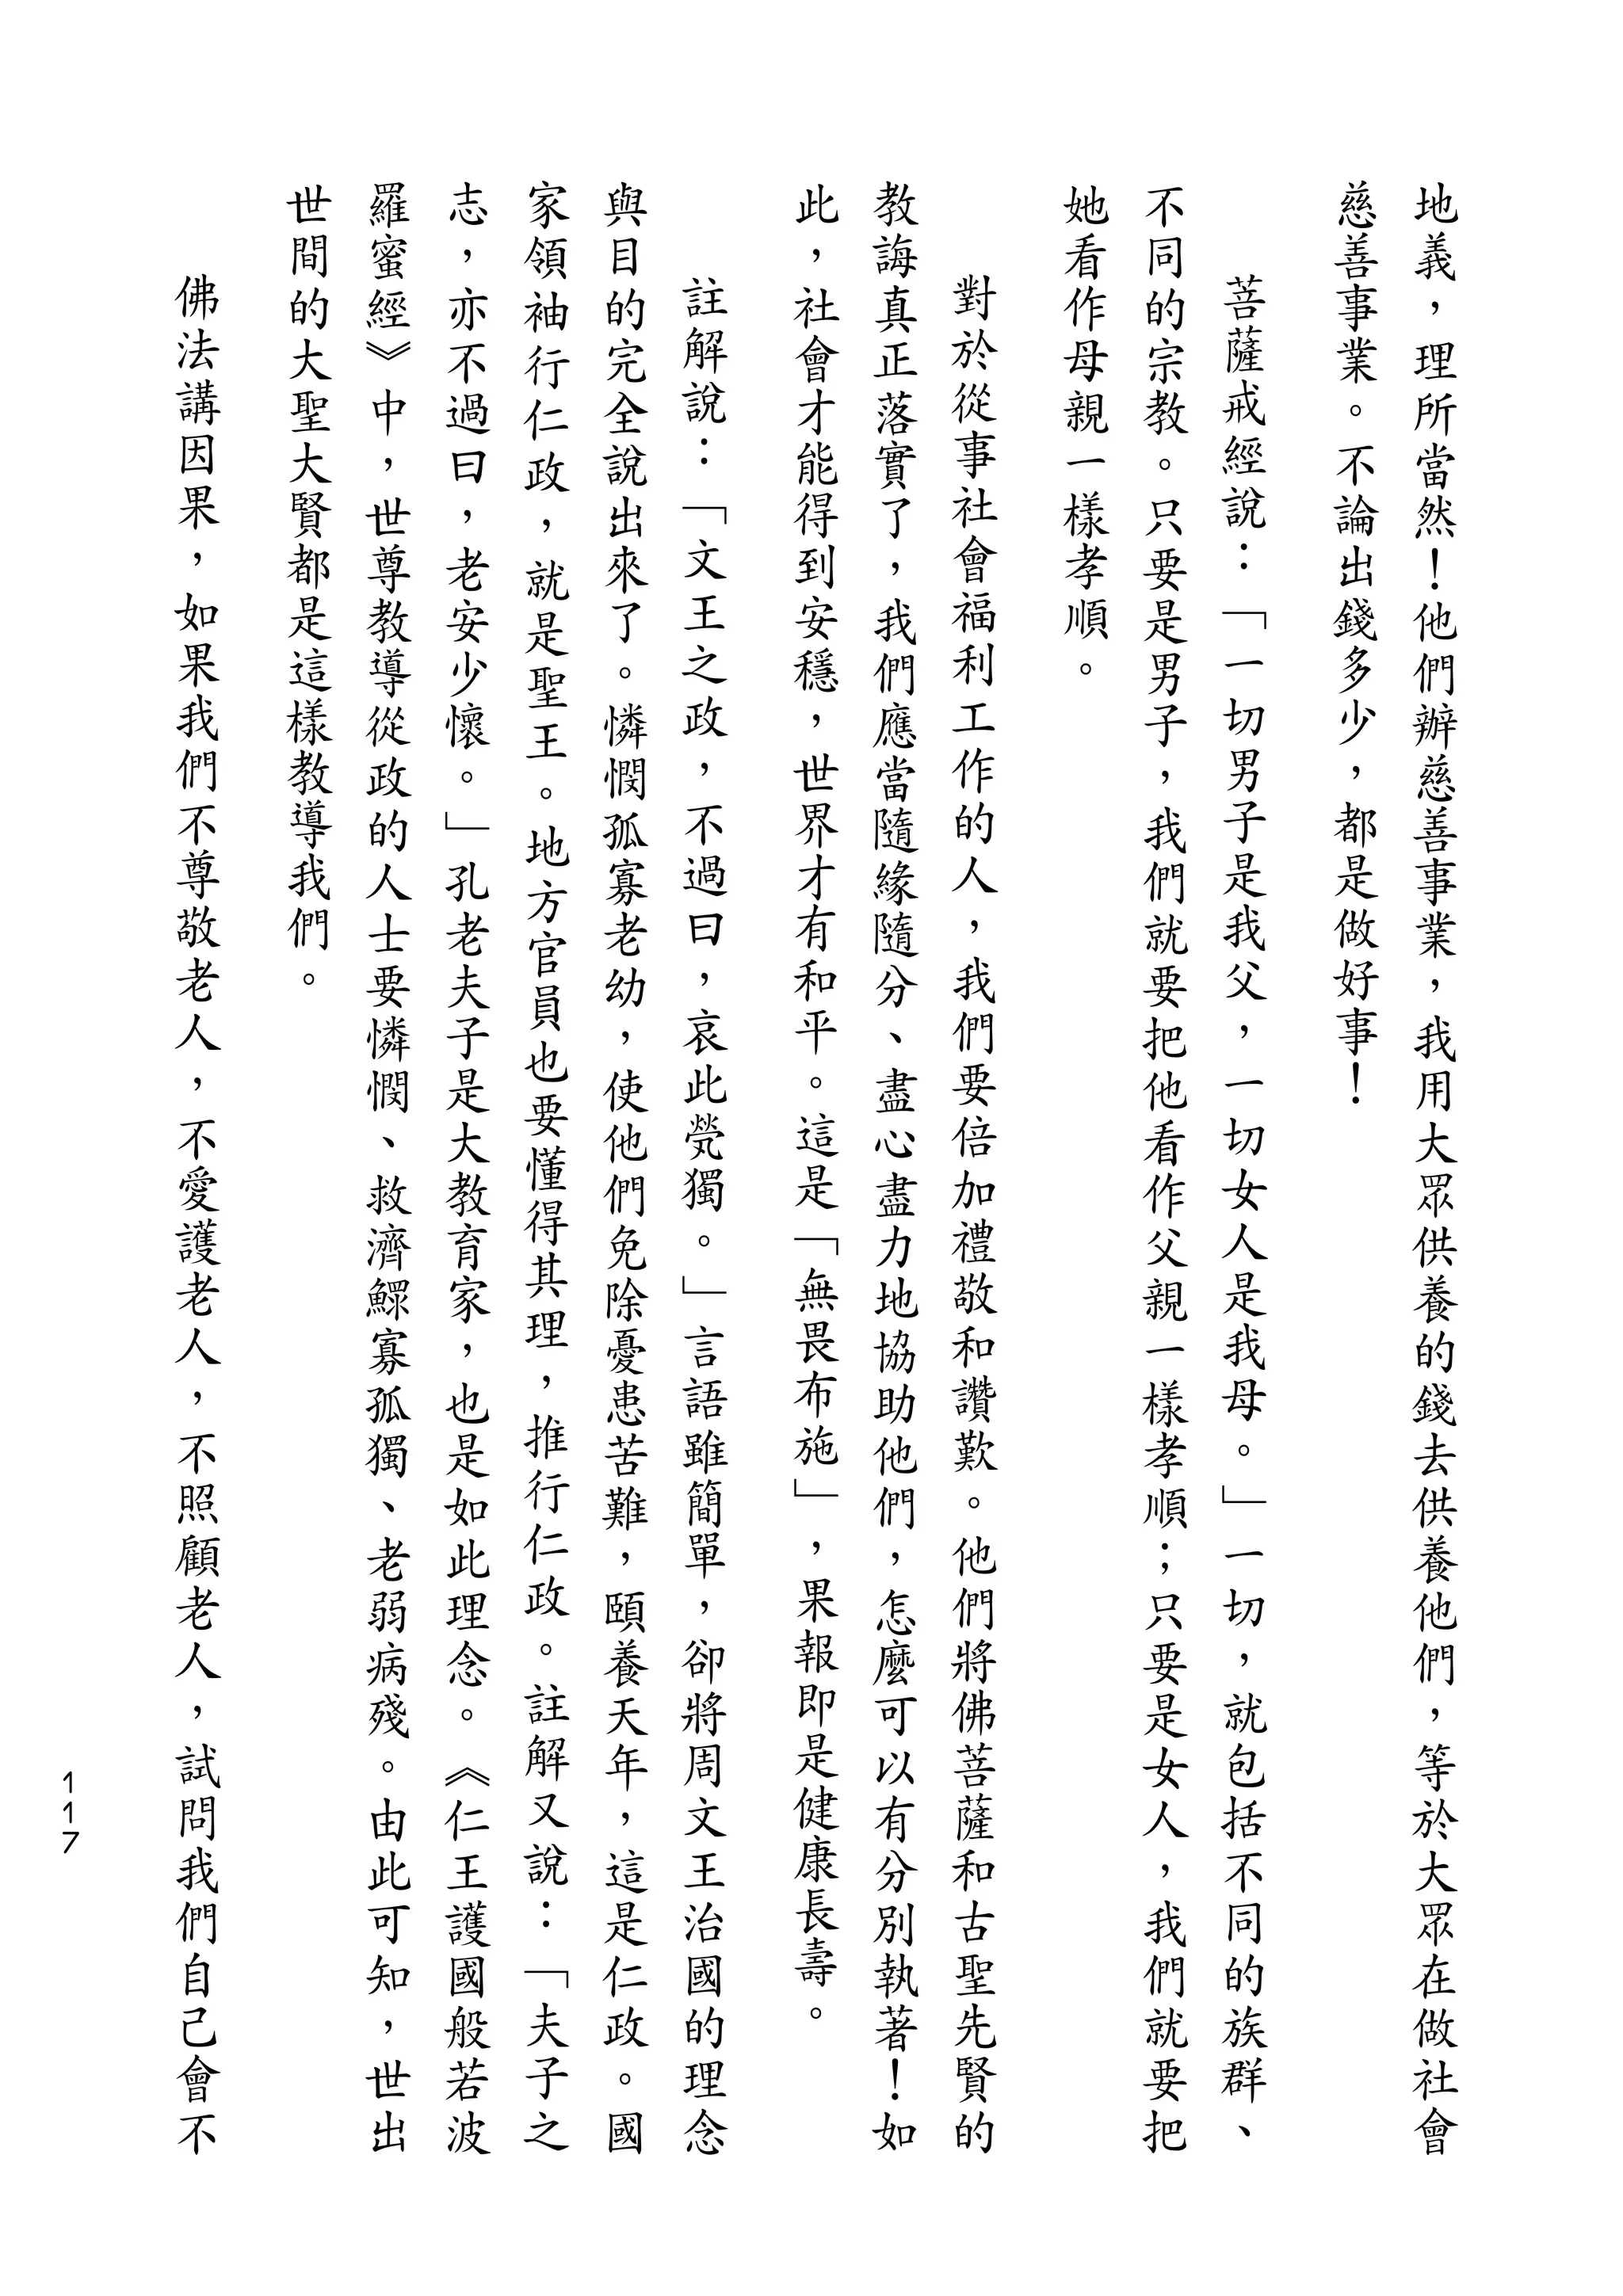 地義，理所當然！他們辦慈善事業，我用大眾供養的錢去供養他們，等於大眾在做社會
慈善事業。不論出錢多少，都是做好事！
菩薩戒經說：「一切男子是我父，一切女人是我母。」一切，就包括不同的族群、
不同的宗教。只要是男子，我們就要把他看作父親一樣孝順；只要是女人，我們就要把
她看作母親一樣孝順。
對於從事社會福利工作的人，我們要倍加禮敬和讚歎。他們將佛菩薩和古聖先賢的
教誨真正落實了，我們應當隨緣隨分、盡心盡力地協助他們，怎麼可以有分別執著！如
此，社會才能得到安穩，世界才有和平。這是「無畏布施」，果報即是健康長壽。
註解說：「文王之政，不過曰，哀此煢獨。」言語雖簡單，卻將周文王治國的理念
與目的完全說出來了。憐憫孤寡老幼，使他們免除憂患苦難，頤養天年，這是仁政。國
家領袖行仁政，就是聖王。地方官員也要懂得其理，推行仁政。註解又說：「夫子之
志，亦不過曰，老安少懷。」孔老夫子是大教育家，也是如此理念。《仁王護國般若波
羅蜜經》中，世尊教導從政的人士要憐憫、救濟鰥寡孤獨、老弱病殘。由此可知，世出
世間的大聖大賢都是這樣教導我們。
佛法講因果，如果我們不尊敬老人，不愛護老人，不照顧老人，試問我們自己會不
117